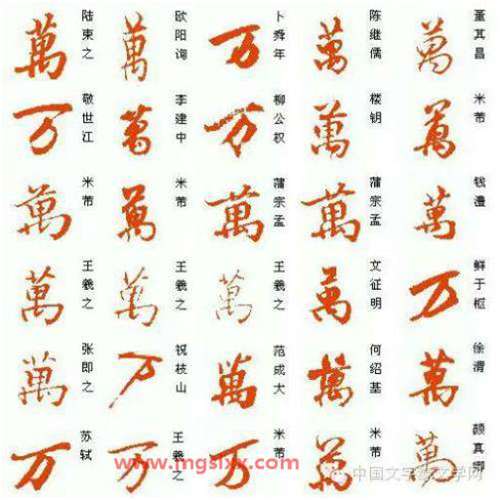 萬 陆柬之 萬 欧阳询 万 卜舜年 萬 陈继儒 萬 董其昌
万 敬世江 萬 李建中 万 柳公权 萬 楼钥 萬 米芾
萬 米芾 萬 米芾 萬 蒲宗孟 萬 蒲宗孟 萬 钱澧
萬 王羲之 萬 王羲之 萬 王羲之 萬 文征明 万 鲜于枢
萬 张即之 万 祝枝山 萬 范成大 萬 何绍基 萬 徐渭
万 苏轼 万 王羲之 万 米芾 萬 米芾 萬 颜真卿